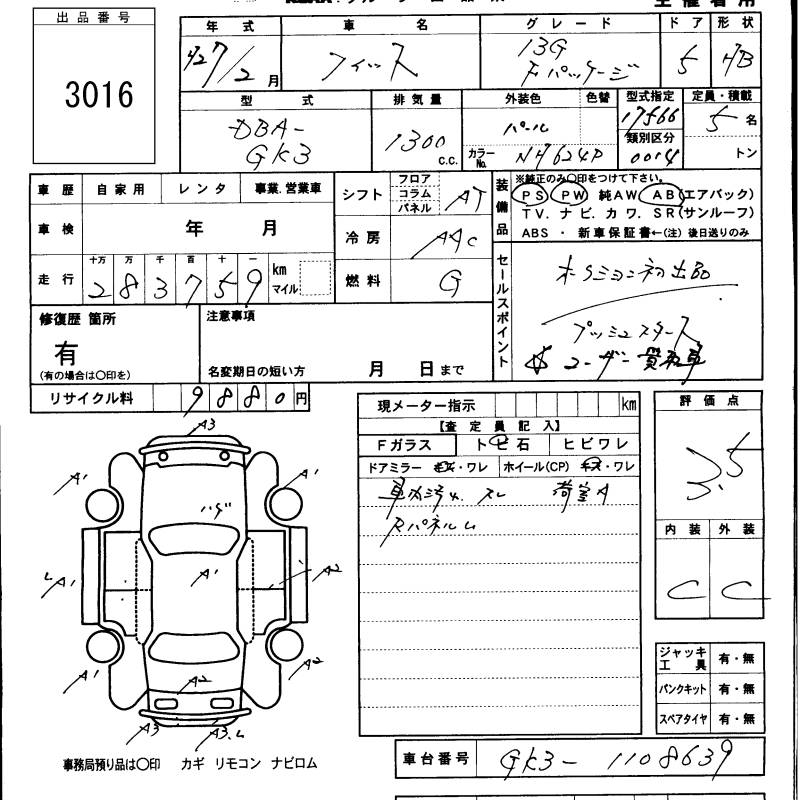 出品番号
3016
年式 車名 グレード ドア 形状
H27/2月 フィット 13G Fパッケージ 5 HB
型式 排気量 外装色 色替 型式指定 定員・積載
DBA-GK3 1300 c.c. パール 17566 5名
カラーNo. NH624P 類別区分 0014 トン
車歴 自家用 レンタ 事業.営業車
車検 年 月
走行 十万 万 千 百 十 一
2 8 3 7 5 9 km マイル
シフト フロア コラム パネル AT
冷房 AAC
燃料 G
装備品
※純正のみ〇印をつけて下さい。
PS PW 純AW AB(エアバック)
TV. ナビ. カワ. SR(サンルーフ)
ABS ・ 新車保証書←(注) 後日送りのみ
セールスポイント
プッシュスタート
ユーザー買取車
修復歴 箇所
有
(有の場合は〇印を)
注意事項
名変期日の短い方 月 日まで
リサイクル料 9880円
現メーター指示 km
【査定員記入】
Fガラス トビ石 ヒビワレ
ドアミラー キズ・ワレ ホイール(CP) キズ・ワレ
車内汚れ. スレ 荷室A
評価点
3.5
内装 外装
C C
A3
A1 A1
ハゲ
A1 A1 A2
A1 A2
A2
A3 A3.
ジャッキ工具 有・無
パンクキット 有・無
スペアタイヤ 有・無
事務局預り品は〇印 カギ リモコン ナビロム
車台番号 GK3-1108639